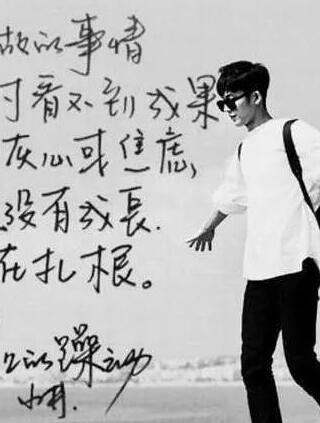 做的事情
时看不到成果
灰心或焦虑,
没有成長.
在扎根。
的躁动